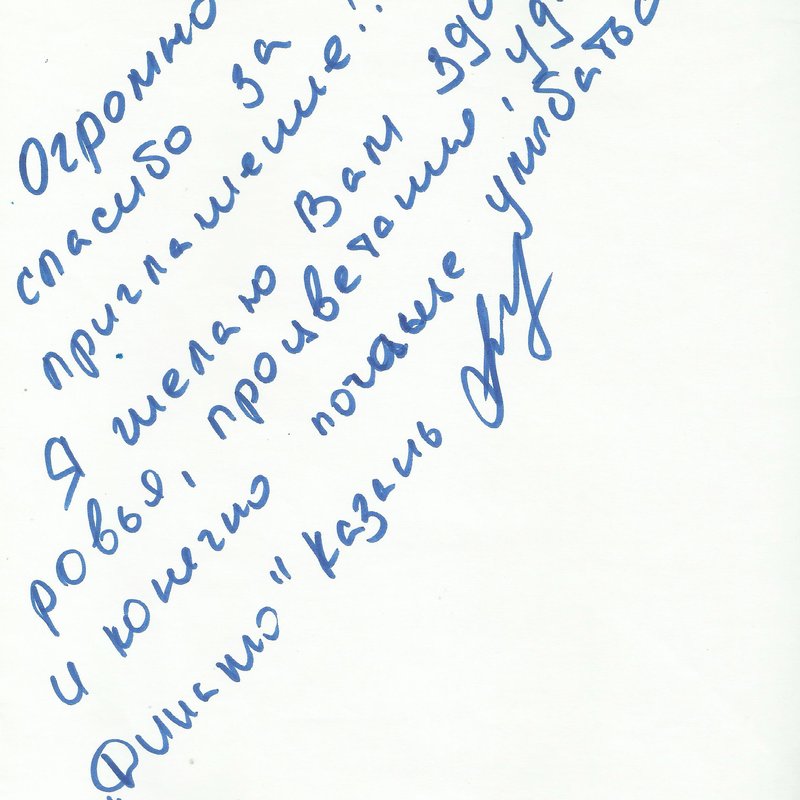 Огромно
спасибо за
приглашение!!
Я желаю Вам здо
ровья, процветания, уд
и конечно почаще улыбатьс
"Динамо" Казань